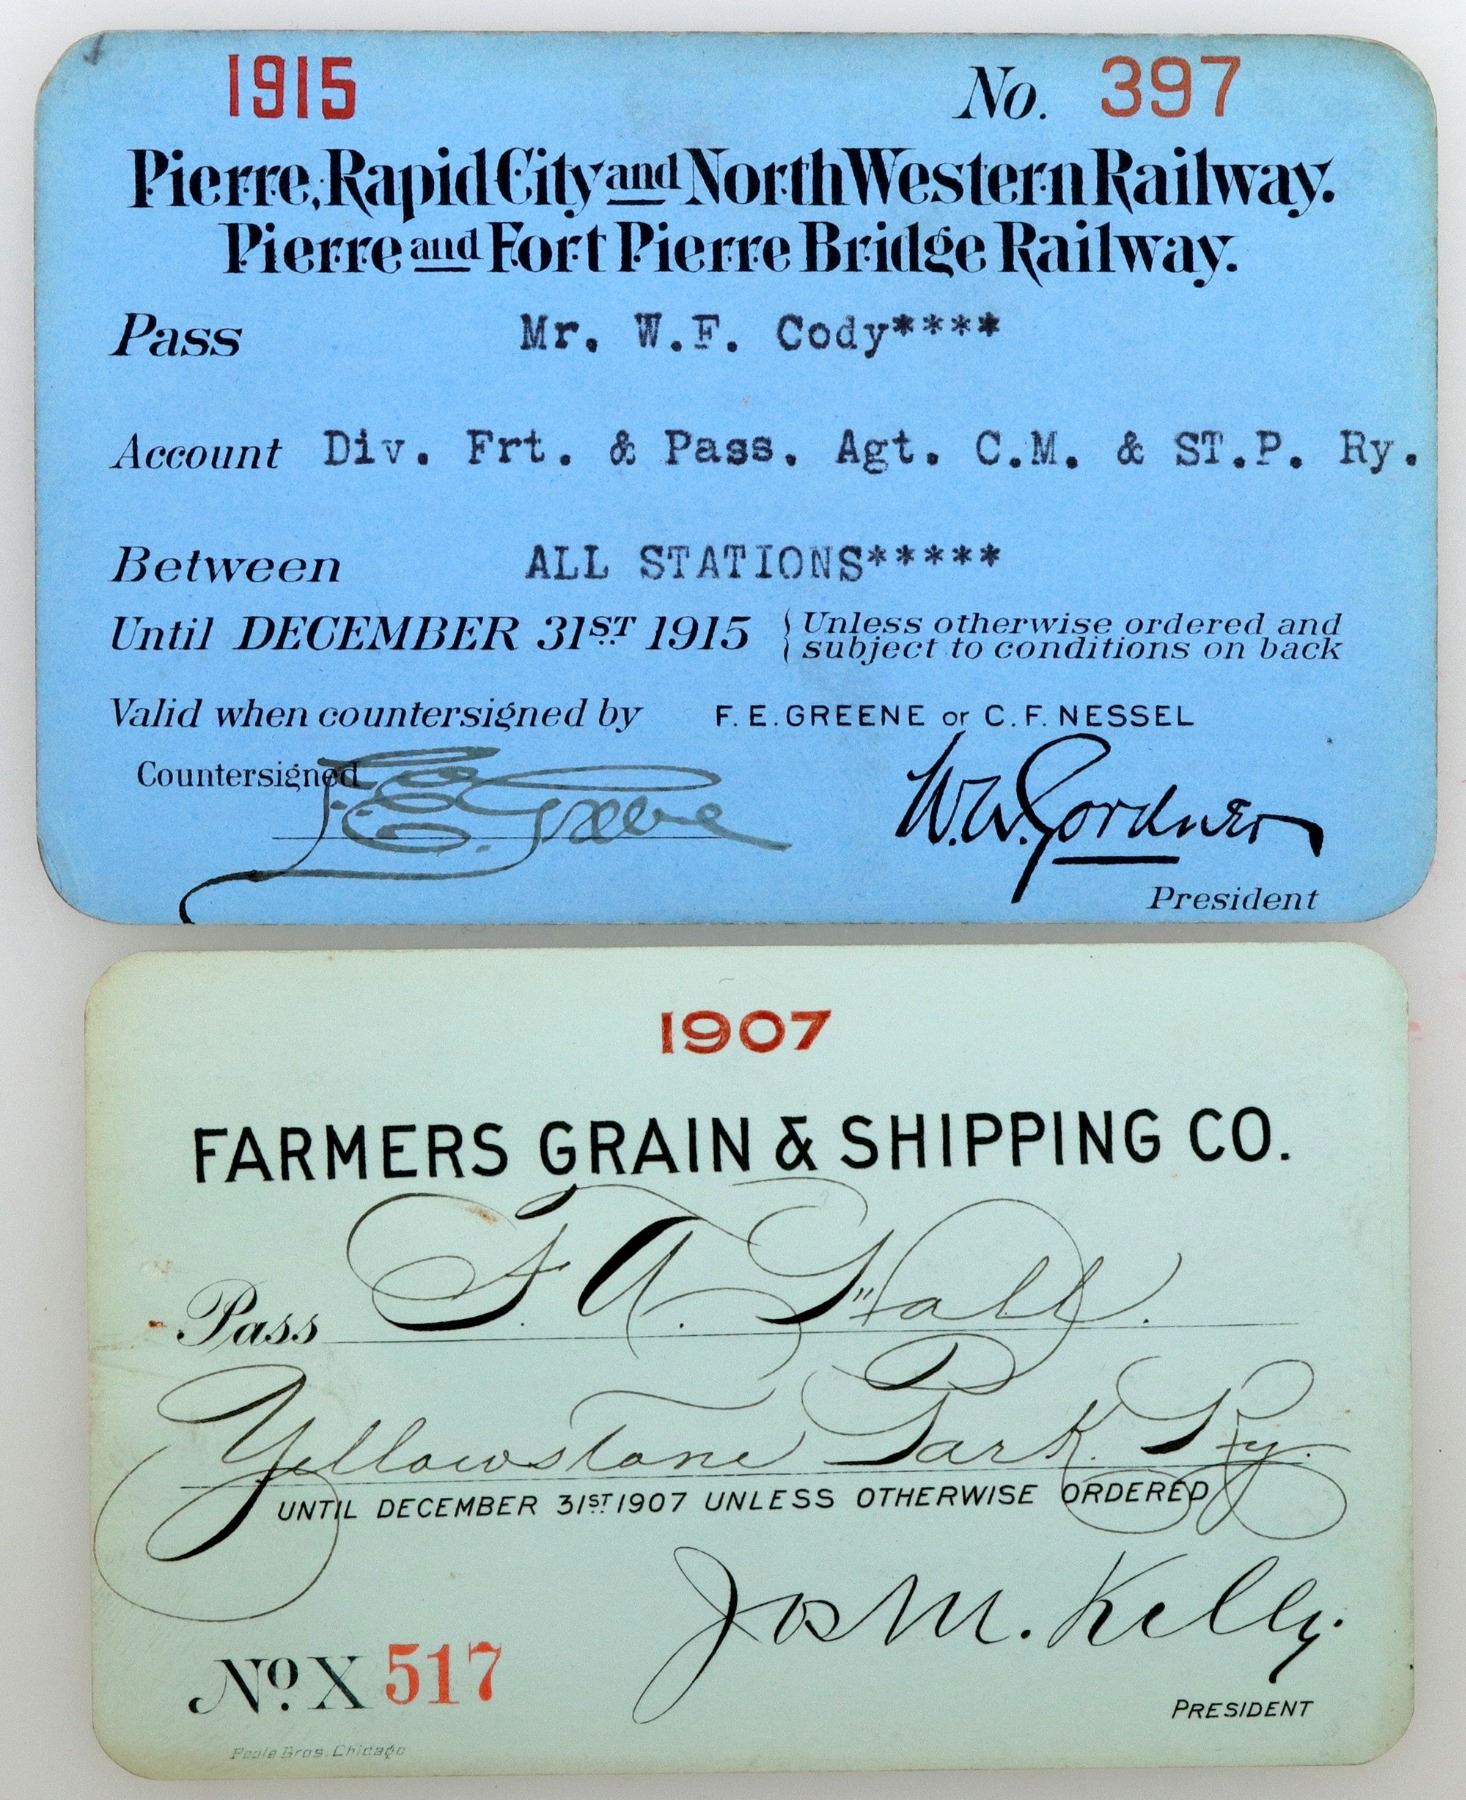 1915 No. 397
Pierre, Rapid City and North Western Railway.
Pierre and Fort Pierre Bridge Railway.
Pass Mr. W.F. Cody****
Account Div. Frt. & Pass. Agt. C.M. & ST.P. Ry.
Between ALL STATIONS*****
Until DECEMBER 31ST 1915 Unless otherwise ordered and
subject to conditions on back
Valid when countersigned by F. E. GREENE or C. F. NESSEL
Countersigned F. E. Greene W. A. Gardner
President
1907
FARMERS GRAIN & SHIPPING CO.
Pass F. A. Hall.
Yellowstone Park Ry.
UNTIL DECEMBER 31ST 1907 UNLESS OTHERWISE ORDERED
Jos M. Kelly.
No. X 517
PRESIDENT
Poole Bros. Chicago